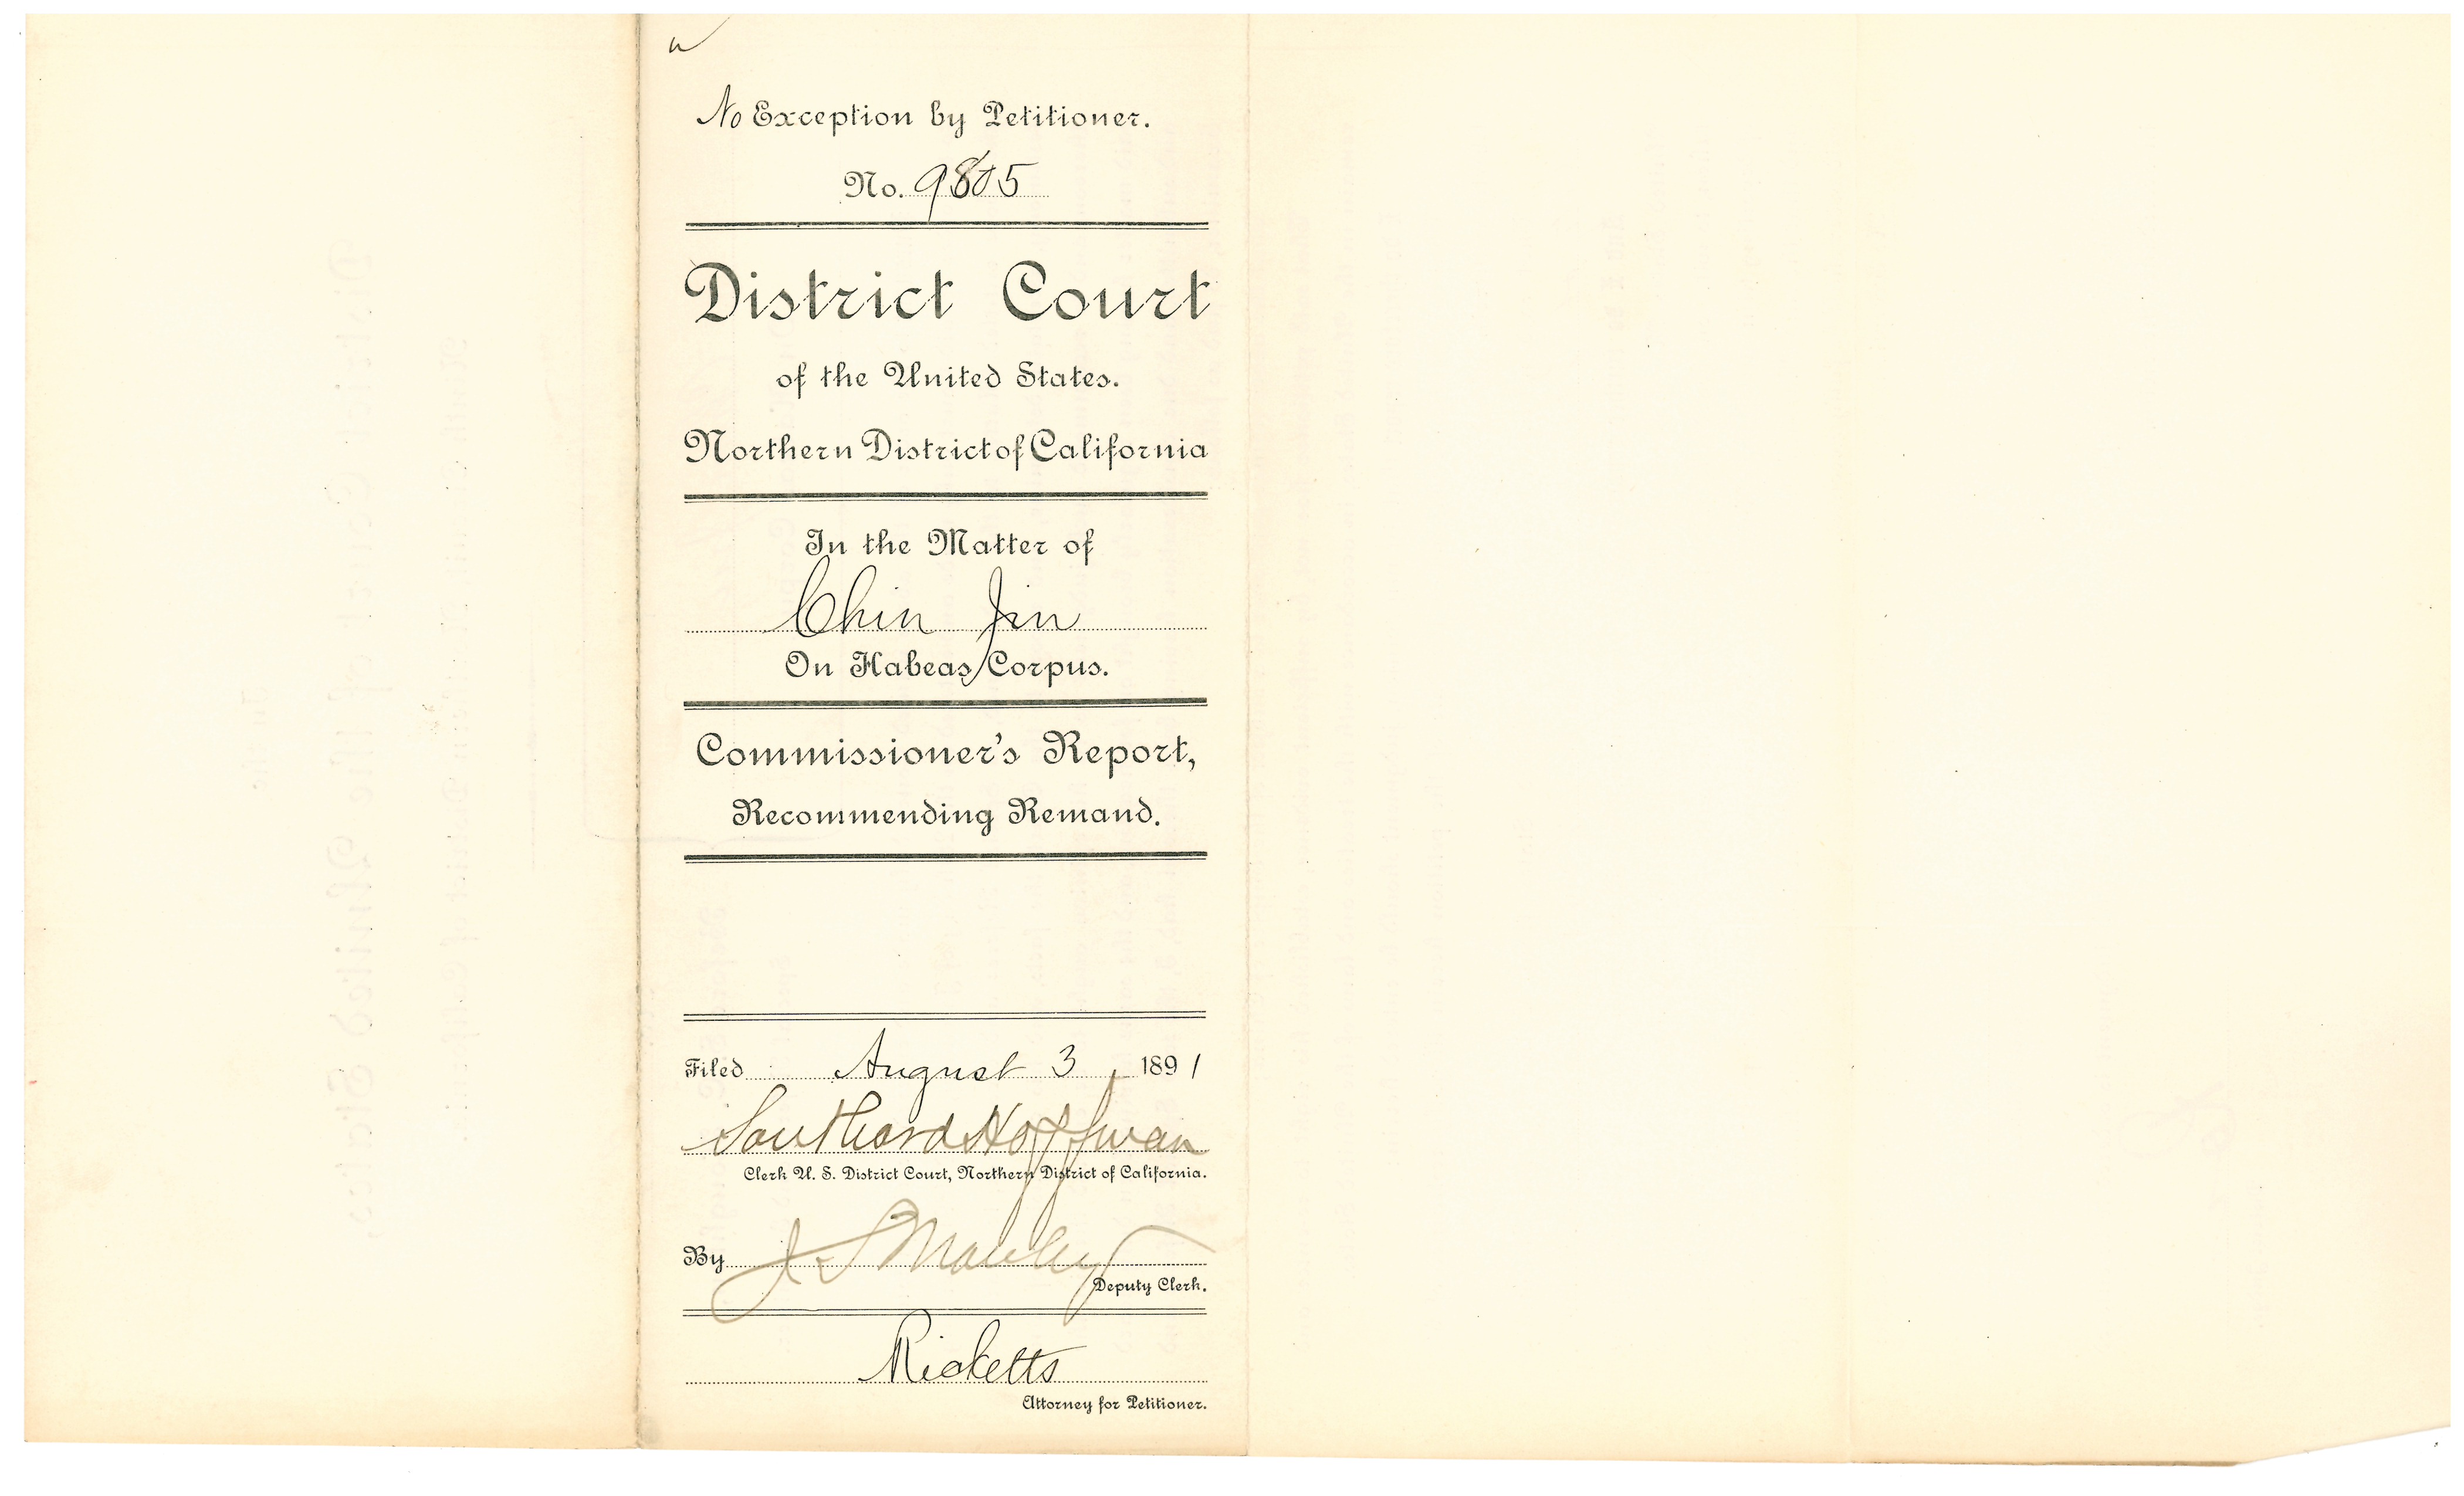 No Exception by Petitioner.
No. 9805
District Court
of the United States.
Northern District of California
In the Matter of
Chin Jin
On Habeas Corpus.
Commissioner's Report,
Recommending Remand.
Filed August 3, 1891
Southard Hoffman
Clerk U. S. District Court, Northern District of California.
By J. S. Manley
Deputy Clerk.
Ricketts
Attorney for Petitioner.